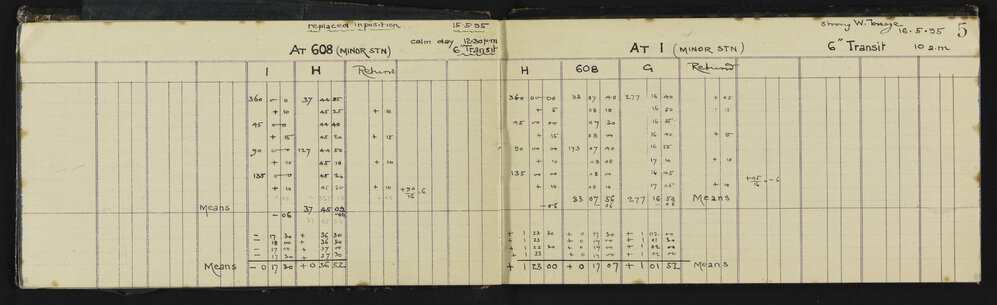 replaced in position 15-5-95
calm day 12.30 p.m
AT 608 (MINOR STN) 6" Transit
I H Returns
360 0 0 37 44 85
+ 10 45 25 + 10
45 0 0 44 40
+ 15 45 20 + 15
90 0 0 127 44 50
+ 10 45 10 + 10
135 0 0 45 20
+ 10 + 10
Means 37 45 09
- 06
- 17 30 + 36 30
- 18 00 + 36 30
- 17 00 + 37 00
- 17 30 + 37 30
Means - 0 17 30 + 0 36 52
Strong W. 16.5.95 5
AT I (MINOR STN) 6" Transit 10 a.m
H 608 G Returns
360 00 00 83 07 40 277 16 40 + 05
+ 5 08 10 16 50 + 15
45 00 00 07 30 16 35
+ 15 08 00 16 40 + 15
90 00 00 173 07 40 16 55
+ 10 08 05 17 10 + 10
135 00 00 08 00 16 45
+ 10 08 10 17 05 + 10
83 07 56 277 16 50 Means
- 06 06 06
+ 1 23 30 + 0 17 30 + 1 02 00
+ 1 23 + 0 17 00 + 1 01 30
+ 1 23 30 + 0 17 00 + 1 02 00
+ 1 23 + 0 17 00 + 1 02 00
+ 1 23 00 + 0 17 07 + 1 01 52 Means